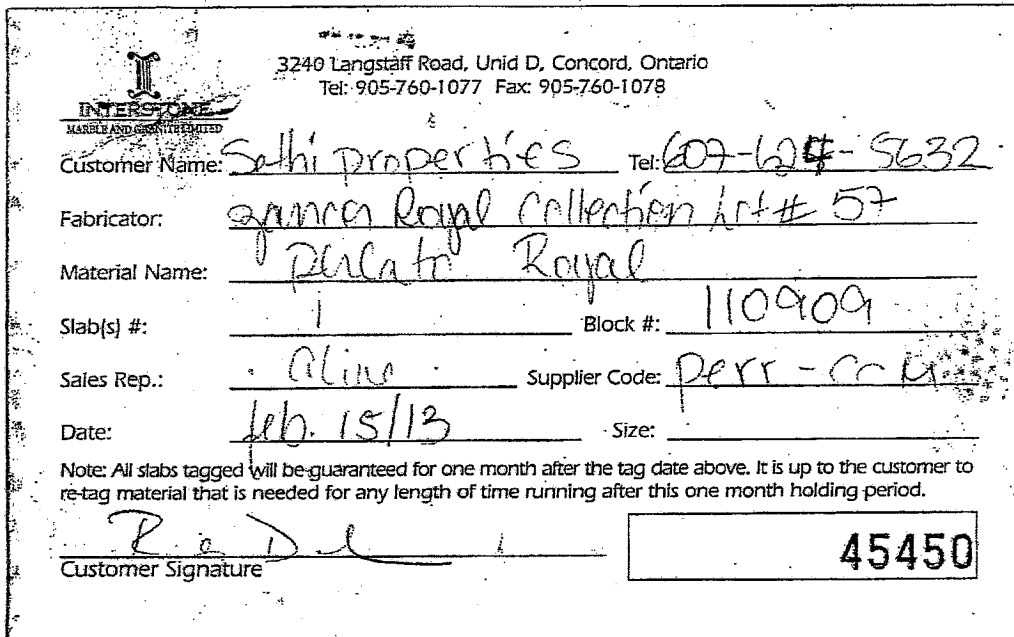 3240 Langstaff Road, Unid D, Concord, Ontario
Tel: 905-760-1077 Fax: 905-760-1078
INTERSTONE
MARBLE AND GRANITE LIMITED
Customer Name: Sethi properties Tel: 607-624-5632
Fabricator: Royal Collection Lot # 57
Material Name: Perlato Royal
Slab(s) #: 1 Block #: 110909
Sales Rep.: Supplier Code: perr -
Date: feb. 15/13 Size:
Note: All slabs tagged will be guaranteed for one month after the tag date above. It is up to the customer to
re-tag material that is needed for any length of time running after this one month holding period.
Customer Signature
45450